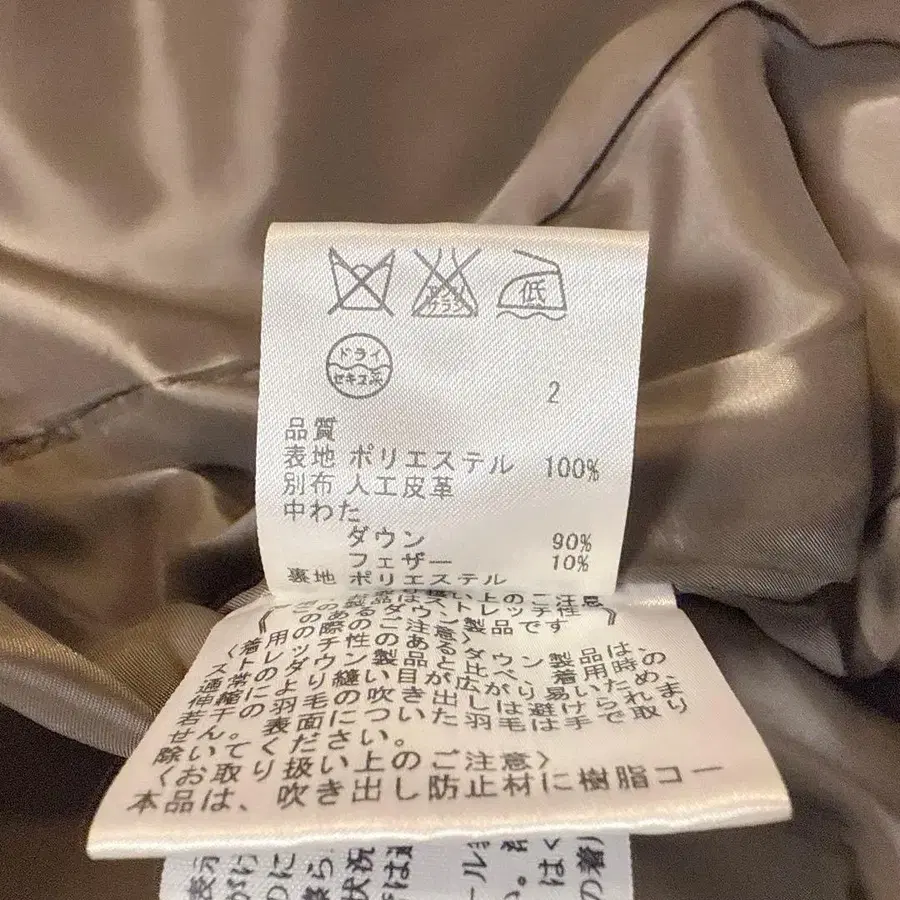 低
ドライ
セキユ系
2
品質
表地 ポリエステル 100%
別布 人工皮革
中わた
ダウン 90%
フェザー 10%
裏地 ポリエステル
扱い上のご注意
この製品はストレッチ性
のあるダウン製品です
〈着用の際のご注意〉
ストレッチ性のあるダウン製品は、
通常のダウン製品と比べ、着用時の
伸縮により縫い目が広がり易いため、
若干の羽毛の吹き出しは避けられま
せん。表面についた羽毛は手で取り
除いてください。
〈お取り扱い上のご注意〉
本品は、吹き出し防止材に樹脂コー